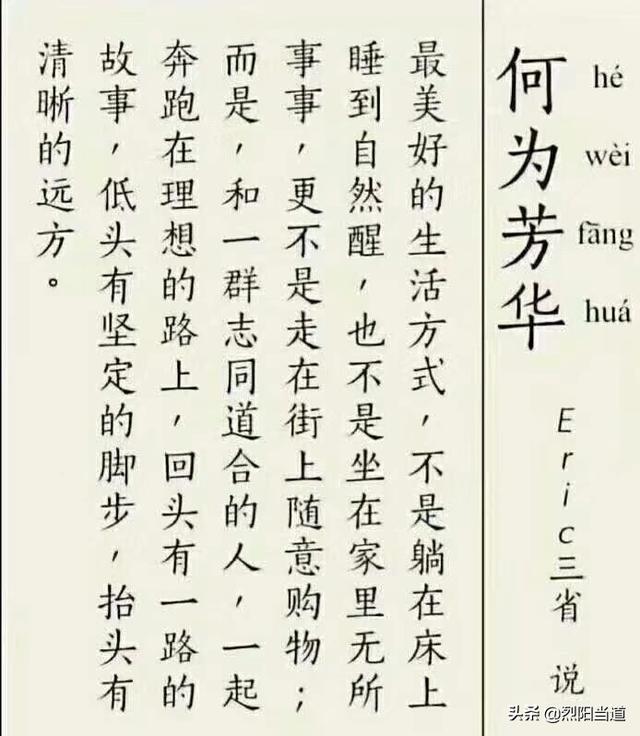 何为芳华
hé
wèi
fāng
huá
Eric三省 说
最美好的生活方式，不是躺在床上
睡到自然醒，也不是坐在家里无所
事事，更不是走在街上随意购物；
而是，和一群志同道合的人，一起
奔跑在理想的路上，回头有一路的
故事，低头有坚定的脚步，抬头有
清晰的远方。
头条 @烈阳当道